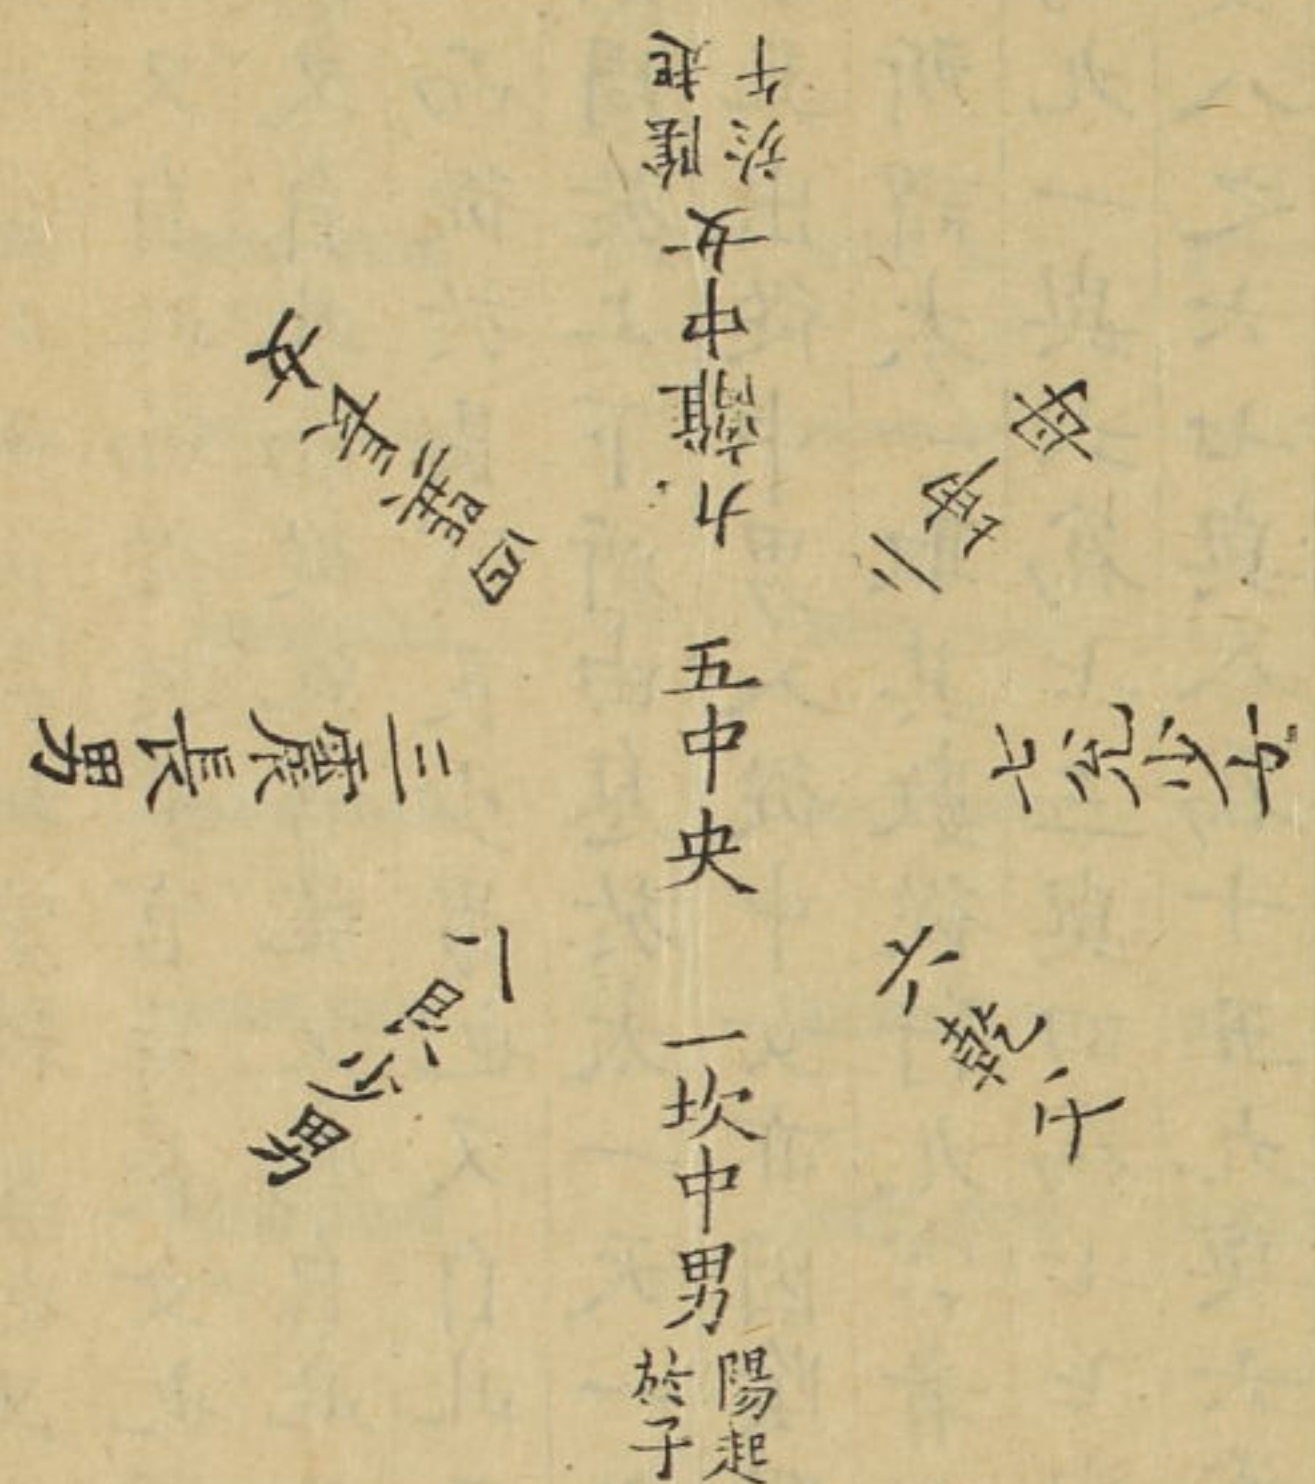 九離中女
陰起
於午
四巽長女
二坤母
三震長男
五中央
七兌少女
八艮少男
六乾父
一坎中男
陽起
於子